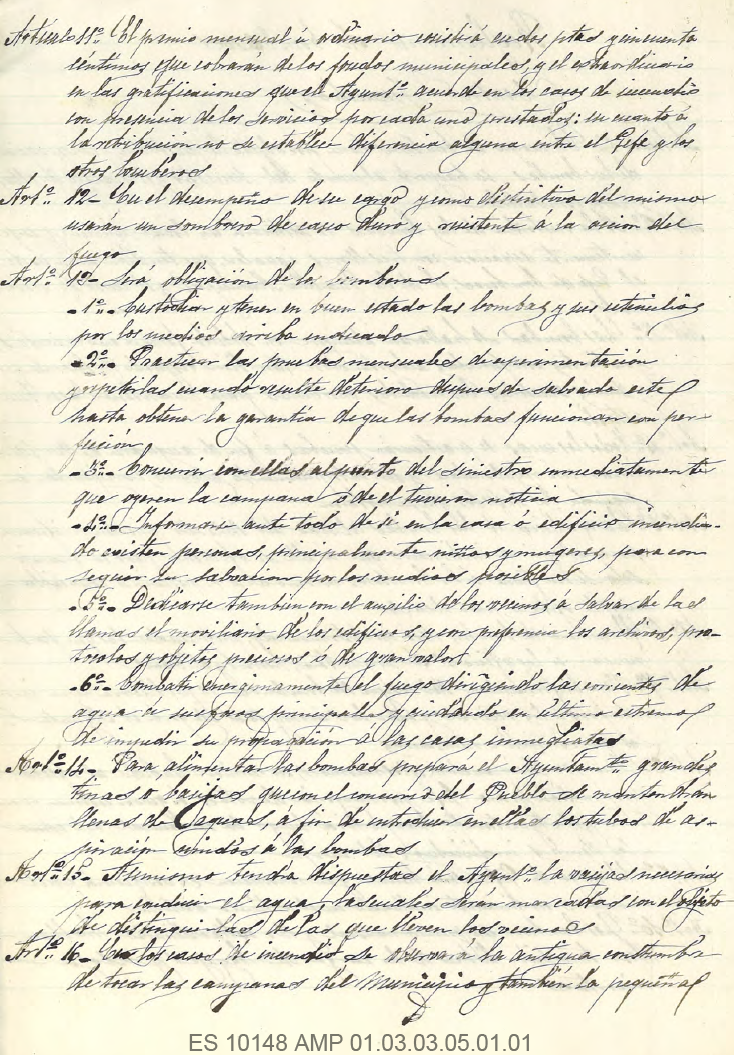 Artículo 11º El premio mensual ú ordinario consistirá en dos ptas y cincuenta
céntimos que cobrarán de los fondos municipales, y el extraordinario
en las gratificaciones que el Ayuntº. acuerde en los casos de incendio
con presencia de los servicios por cada uno prestados: en cuanto á
la retribución no se establece diferencia alguna entre el Gefe y los
otros bomberos
Artº. 12- En el desempeño de su cargo y como distintivo del mismo
usarán un sombrero de casco duro y resistente á la accion del
fuego
Artº. 13- Será obligación de los bomberos
-1º- Custodiar y tener en buen estado las bombas y sus utensilios
por los medios arriba indicado
-2º- Practicar las pruebas mensuales de esperimentación
y repetirlas cuando resulte deterioro despues de salvado este
hasta obtener la garantía de que las bombas funcionan con per-
fección
-3º- Concurrir con ellas al punto del siniestro inmediatamente
que oyeren la campana ó de el tuvieren noticia
-4º- Informarse ante todo de si en la casa ó edificio incendia-
do existen personas, principalmente niños y mugeres, para con
seguir su salvacion por los medios posibles
-5º- Dedicarse también con el auxilio de los vecinos á salvar de las
llamas el moviliario de los edificios, y con preferencia los archivos, pro-
tocolos y objetos preciosos ó de gran valor
-6º- Combatir energicamente el fuego dirigiendo las corrientes de
agua á sus focos principales y cuidando en último estremo
de impedir su propagación á las casas inmediatas
Artº. 14- Para alimentar las bombas prepara el Ayuntamtº. grandes
tinas o bacijas que con el concurso del Pueblo se mantendrán
llenas de aguas, á fin de introducir en ellas los tubos de as-
piración unidos á las bombas
Artº. 15- Asimismo tendra dispuestas el Ayuntº. la vasijas necesarias
para conducir el agua, las cuales serán marcadas con el objeto
de distinguirlas de las que lleven los vecinos
Artº. 16- En los casos de incendio se observará la antigua constumbre
de tocar las campanas del Municipio y también la pequeña
ES 10148 AMP 01.03.03.05.01.01